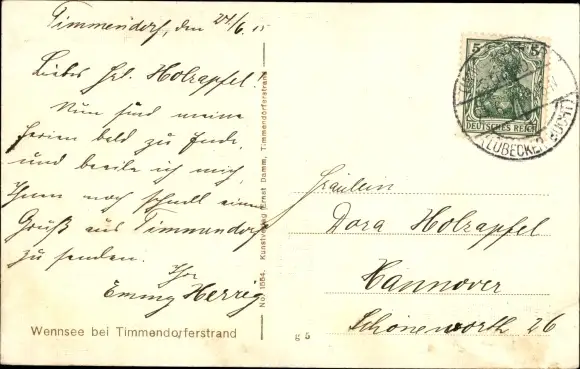 Timmendorf, den 24/6. 15
Liebes Frl. Holzapfel.
Nun sind meine
Ferien bald zu Ende,
und beeile ich mich
Ihnen noch schnell einen
Gruß aus Timmendorf
zu senden.
Ihr
Emmy Herzig
Wennsee bei Timmendorferstrand
No. 1554. Kunstverlag Ernst Damm, Timmendorferstrand
g 5
5 5
DEUTSCHES REICH
(LÜBECKER BUCHT)
Fräulein
Dora Holzapfel
Hannover
Schöneworth 26